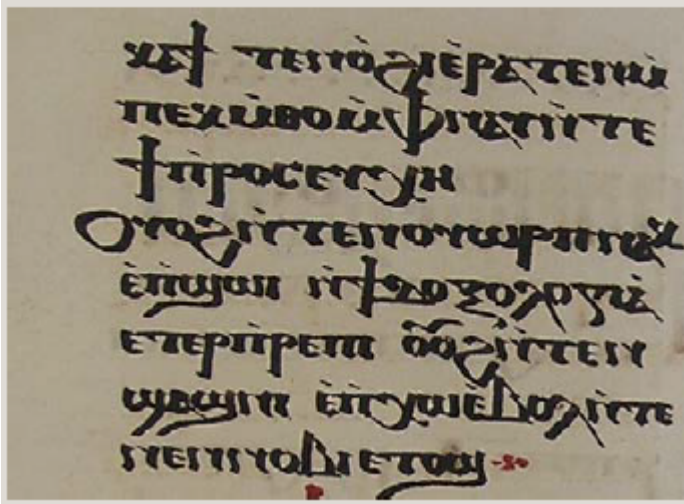 ⲧⲉⲛⲟ̀ϩⲓⲉ̀ⲣⲁⲧⲉⲛⲙ̀
ⲡⲉⲕⲙ̀ⲑⲟ ⲙ̀ⲫⲛⲁⲩ ⲛ̀ⲧⲉ
ϯⲡ̀ⲣⲟⲥⲉⲩⲭⲏ
Ⲟⲩⲟϩ ⲛ̀ⲧⲉⲛⲟⲩⲱⲣⲡ ⲛⲁⲕ
ⲉ̀ⲡ̀ϣⲱⲓ ⲛ̀ϯⲇⲟⲝⲟⲗⲟⲅⲓⲁ̀
ⲉⲧⲉⲣⲡ̀ⲣⲉⲡⲓ ⲟⲩⲟϩ ⲛ̀ⲧⲉⲛ
ϣⲁϣⲛⲓ ⲉ̀ⲡ̀ⲭⲱⲉ̀ⲃⲟⲗ ⲛ̀ⲧⲉ
ⲛⲉⲛⲛⲟⲃⲓ ⲉⲧⲟϣ